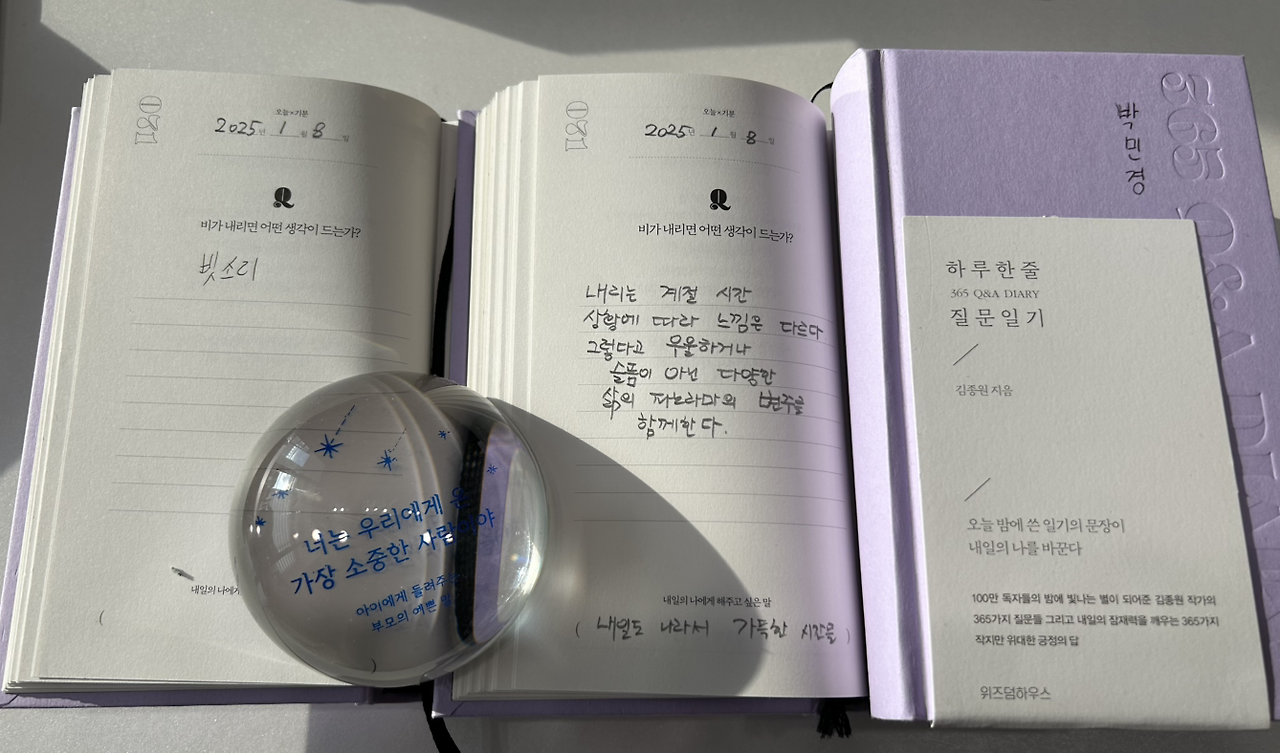 031
오늘×기분
2025년 1월 8일
Q
비가 내리면 어떤 생각이 드는가?
빗소리
내일의 나에게
(
)
너는 우리에게 온
가장 소중한 사람이야
아이에게 들려주는
부모의 예쁜 말
031
오늘×기분
2025년 1월 8일
Q
비가 내리면 어떤 생각이 드는가?
내리는 계절 시간
상황에 따라 느낌은 다르다
그렇다고 우울하거나
슬픔이 아닌 다양한
삶의 파노라마의 변주를
함께한다.
내일의 나에게 해주고 싶은 말
( 내일도 나라서 가득한 시간을 )
365 Q&A DIARY
박민경
하루한줄
365 Q&A DIARY
질문일기
김종원 지음
오늘 밤에 쓴 일기의 문장이
내일의 나를 바꾼다
100만 독자들의 밤에 빛나는 별이 되어준 김종원 작가의
365가지 질문들 그리고 내일의 잠재력을 깨우는 365가지
작지만 위대한 긍정의 답
위즈덤하우스